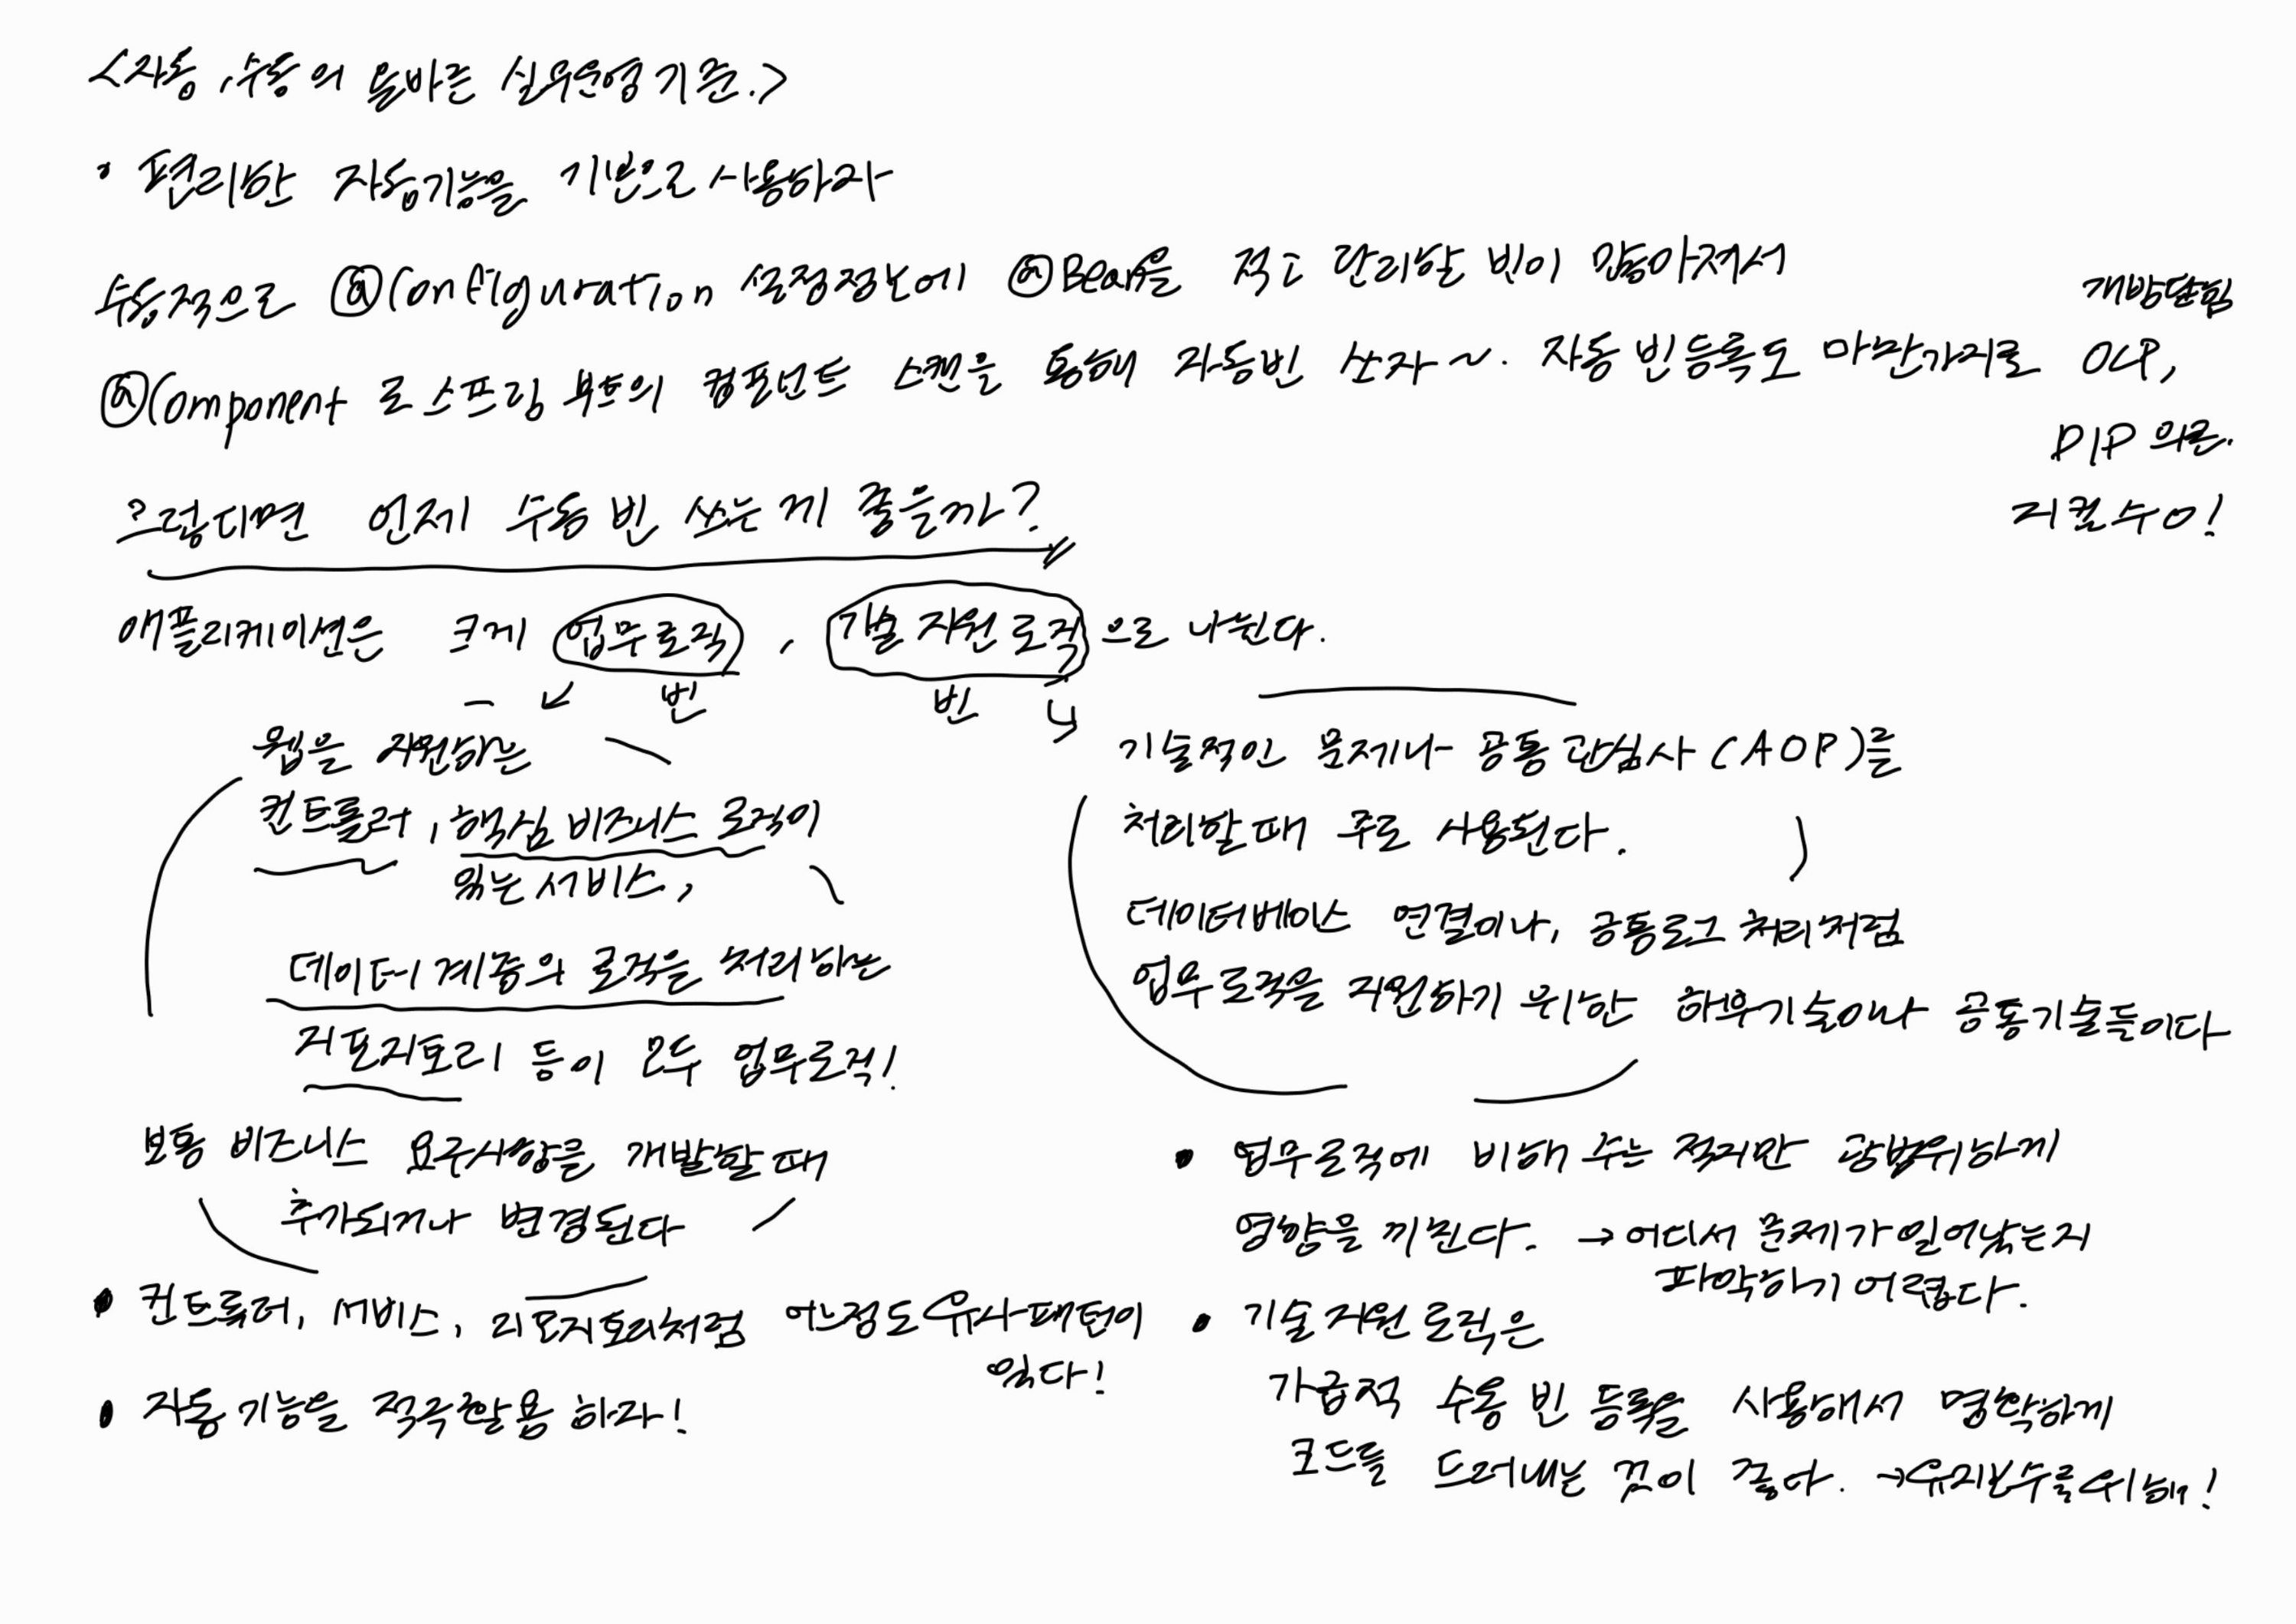 <자동, 수동의 올바른 실무운영 기준.>
• 편리한 자동기능을 기본으로 사용하자
수동적으로 @Configuration 설정정보에 @Bean을 적고 관리할 빈이 많아져서
@Component 로 스프링 부트의 컴포넌트 스캔을 통해 자동빈 쓰자~. 자동 빈등록도 마찬가지로
개방닫힘
OCP,
DIP 의존.
지킬수 O!
그렇다면 언제 수동 빈 쓰는게 좋을까?
애플리케이션은 크게 업무로직, 기술 지원 로직으로 나뉜다.
빈 빈
웹을 지원하는
컨트롤러, 핵심 비즈니스 로직이
있는 서비스,
데이터 계층의 로직을 처리하는
리포지토리 등이 모두 업무로직!
보통 비즈니스 요구사항을 개발할 때
추가되거나 변경된다
• 컨트롤러, 서비스, 리포지토리처럼 어느정도 유사패턴이
있다!
• 자동 기능을 적극활용 하자!
기술적인 문제나 공통 관심사 (AOP)를
처리할 때 주로 사용된다.
데이터베이스 연결이나, 공통로그 처리처럼
업무로직을 지원하기 위한 하부기술이나 공통기술들이다
• 업무로직에 비해 수는 적지만 광범위하게
영향을 끼친다. → 어디서 문제가 일어났는지
파악하기 어렵다.
• 기술 지원 로직은
가급적 수동 빈 등록을 사용해서 명확하게
코드를 드러내는 것이 좋아. → 유지보수를 위해!